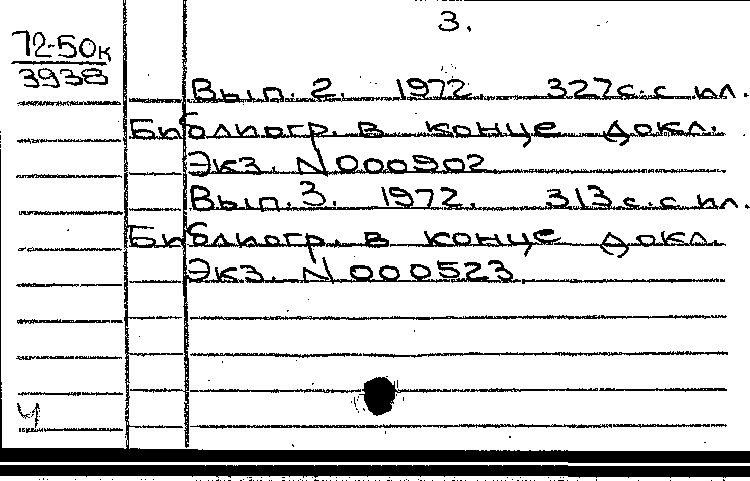 3.
72-50к
3938
Вып. 2. 1972. 327с. с ил.
Библиогр. в конце докл.
Экз. N 000902
Вып. 3. 1972. 313 с. с ил.
Библиогр. в конце докл.
Экз. N 000523
Ч